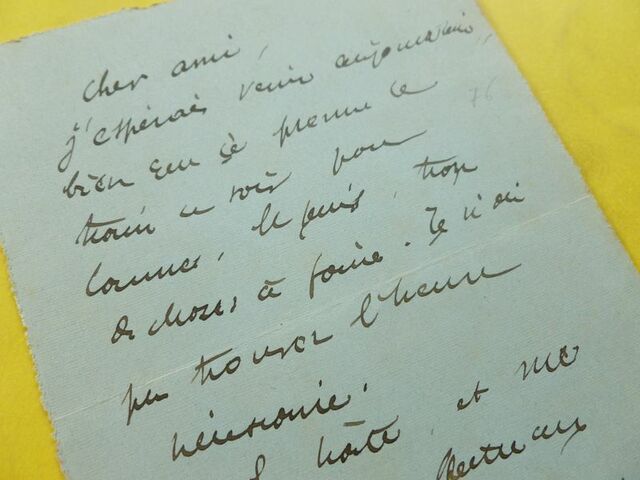 Cher ami,
j'espérais venir aujourd'hui,
bien que je prenne le
train ce soir pour
Cannes. Et puis, trop
de choses à faire. Je n'ai
pu trouver l'heure
nécessaire.
hâte, et me
76